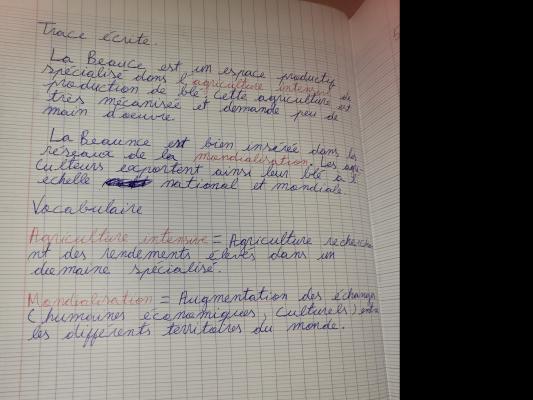 Trace écrite.
La Beauce est un espace productif
spécialisé dans l'agriculture intensive de
production de blé. Cette agriculture est
très mécanisée et demande peu de
main d'oeuvre.
La Beaunce est bien insérée dans les
réseaux de la mondialisation. Les agri-
culteurs exportent ainsi leur blé a l'
échelle national et mondiale
Vocabulaire
Agriculture intensive = Agriculture recherche
nt des rendements élevés dans un
dumaine spécialisé.
Mondialisation = Augmentation des échanges
(humaines économiques, culturels) entre
les différents territoires du monde.